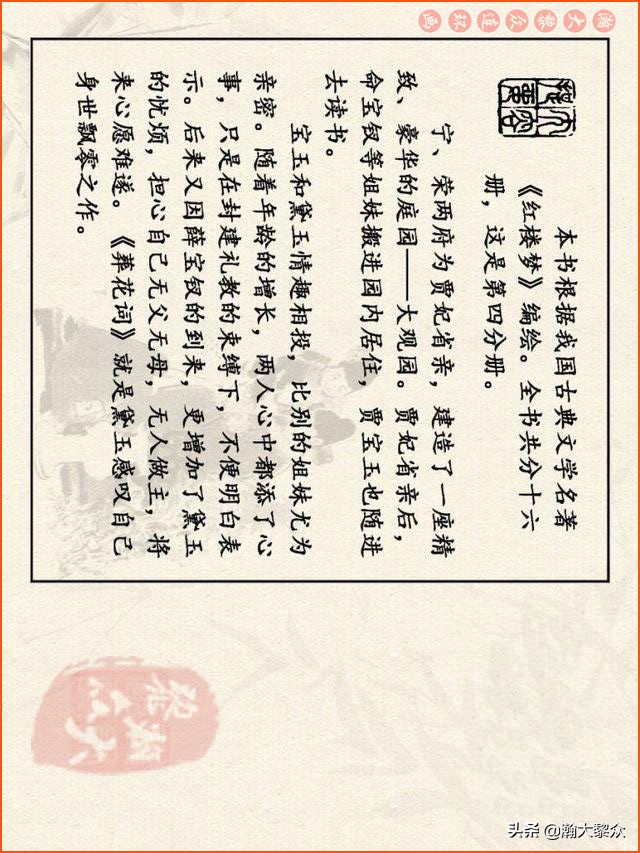 瀚大黎众连环画
内容提要
本书根据我国古典文学名著
《红楼梦》编绘。全书共分十六
册，这是第四分册。
宁、荣两府为贾妃省亲，建造了一座精
致、豪华的庭园——大观园。贾妃省亲后，
命宝钗等姐妹搬进园内居住，贾宝玉也随进
去读书。
宝玉和黛玉情趣相投，比别的姐妹尤为
亲密。随着年龄的增长，两人心中都添了心
事，只是在封建礼教的束缚下，不便明白表
示。后来又因薛宝钗的到来，更增加了黛玉
的忧烦，担心自己无父无母，无人做主，将
来心愿难遂。《葬花词》就是黛玉感叹自己
身世飘零之作。
头条 @瀚大黎众